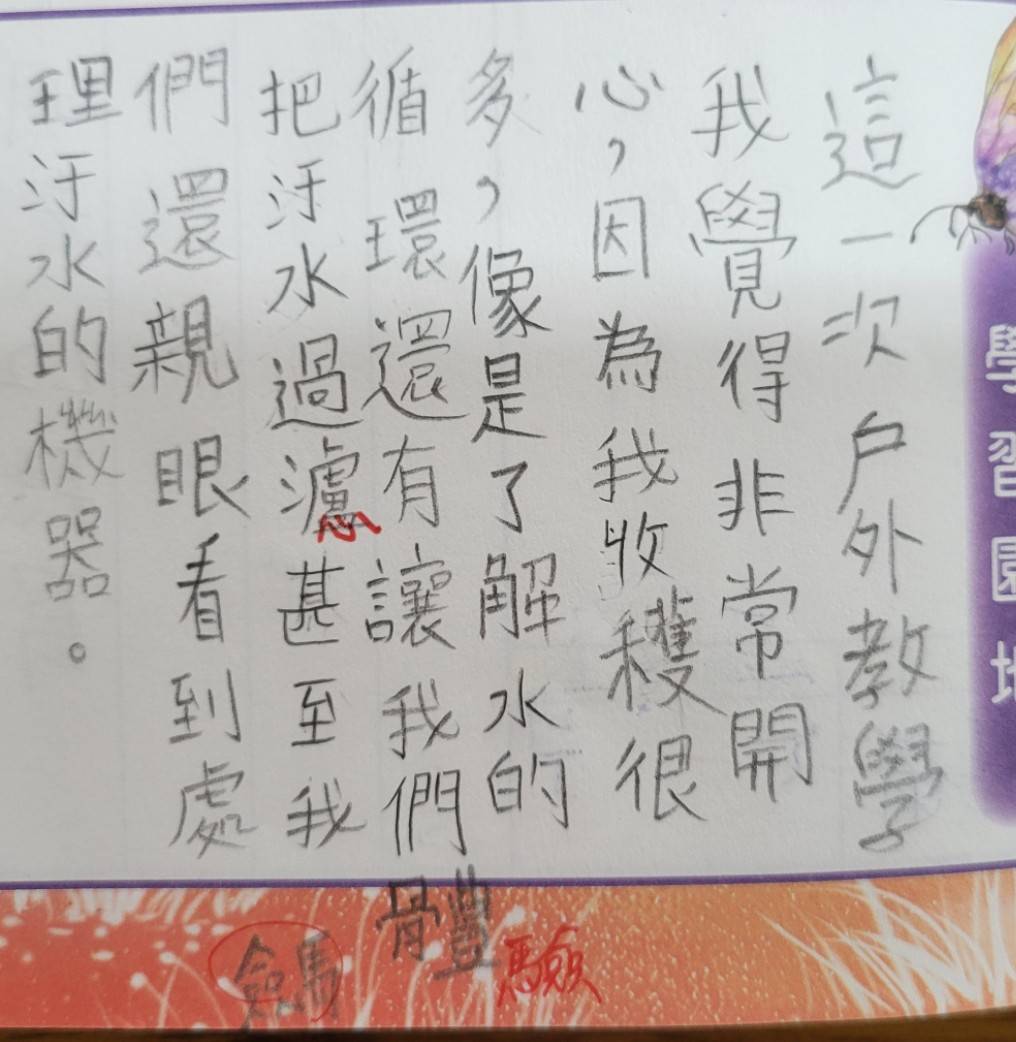 這一次戶外教學
我覺得非常開
心,因為我收穫很
多,像是了解水的
循環還有讓我們體驗
把汙水過濾甚至我
們還親眼看到處
理汙水的機器。
驗
學習園地